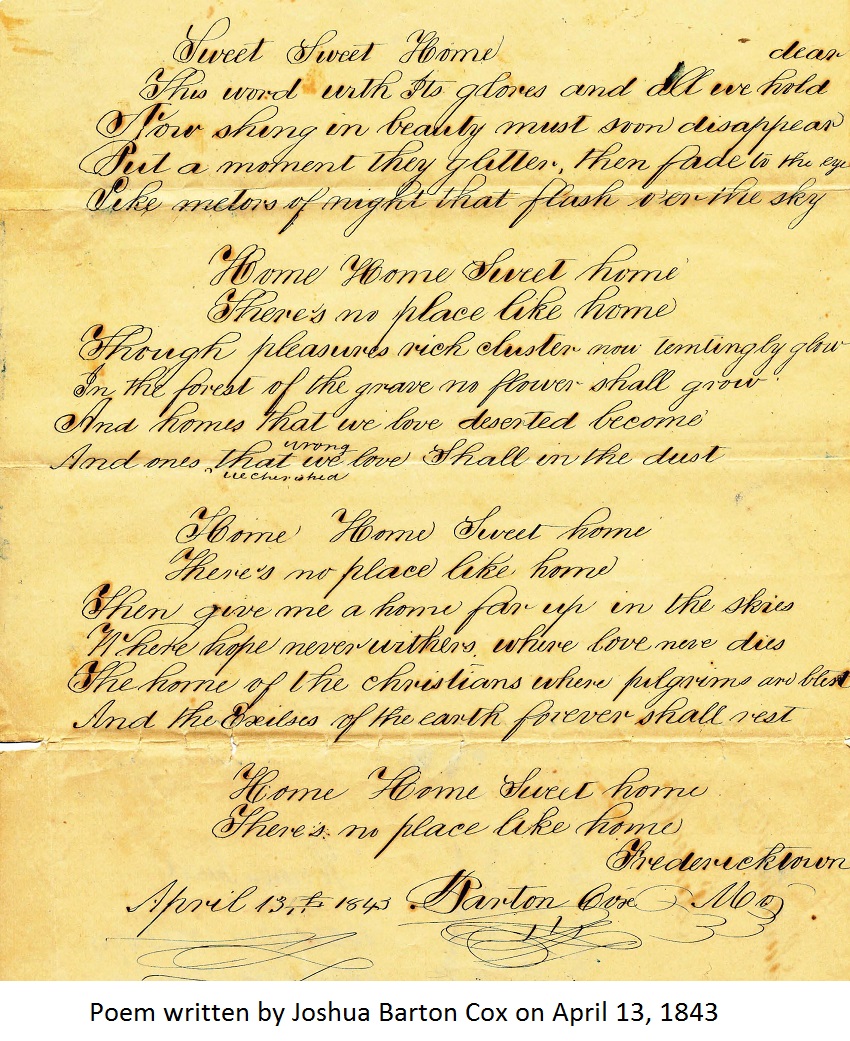 Sweet Sweet Home dear
This word with Its glores and all we hold
Now shing in beauty must soon disappear
But a moment they glitter, then fade to the eye
Like metors of night that flash o'er the sky
Home Home Sweet home
There's no place like home
Though pleasures rich cluster now temtingly glow
In the forest of the grave no flower shall grow
And homes that we love deserted become
wrong
And ones that we love Shall in the dust
we cherished
Home Home Sweet home
There's no place like home
Then give me a home far up in the skies
Where hope never withers, where love neve dies
The home of the christians where pilgrims are blest
And the Exilses of the earth forever shall rest
Home Home Sweet home
There's no place like home
Fredericktown
April 13,th 1843 Barton Cox Mo
Poem written by Joshua Barton Cox on April 13, 1843